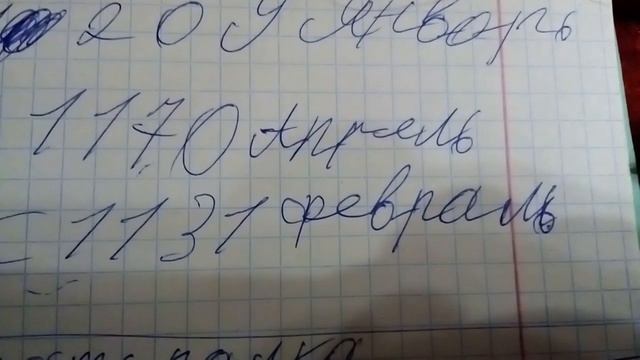 209 Январь
1170 Апрель
= 1131 февраль